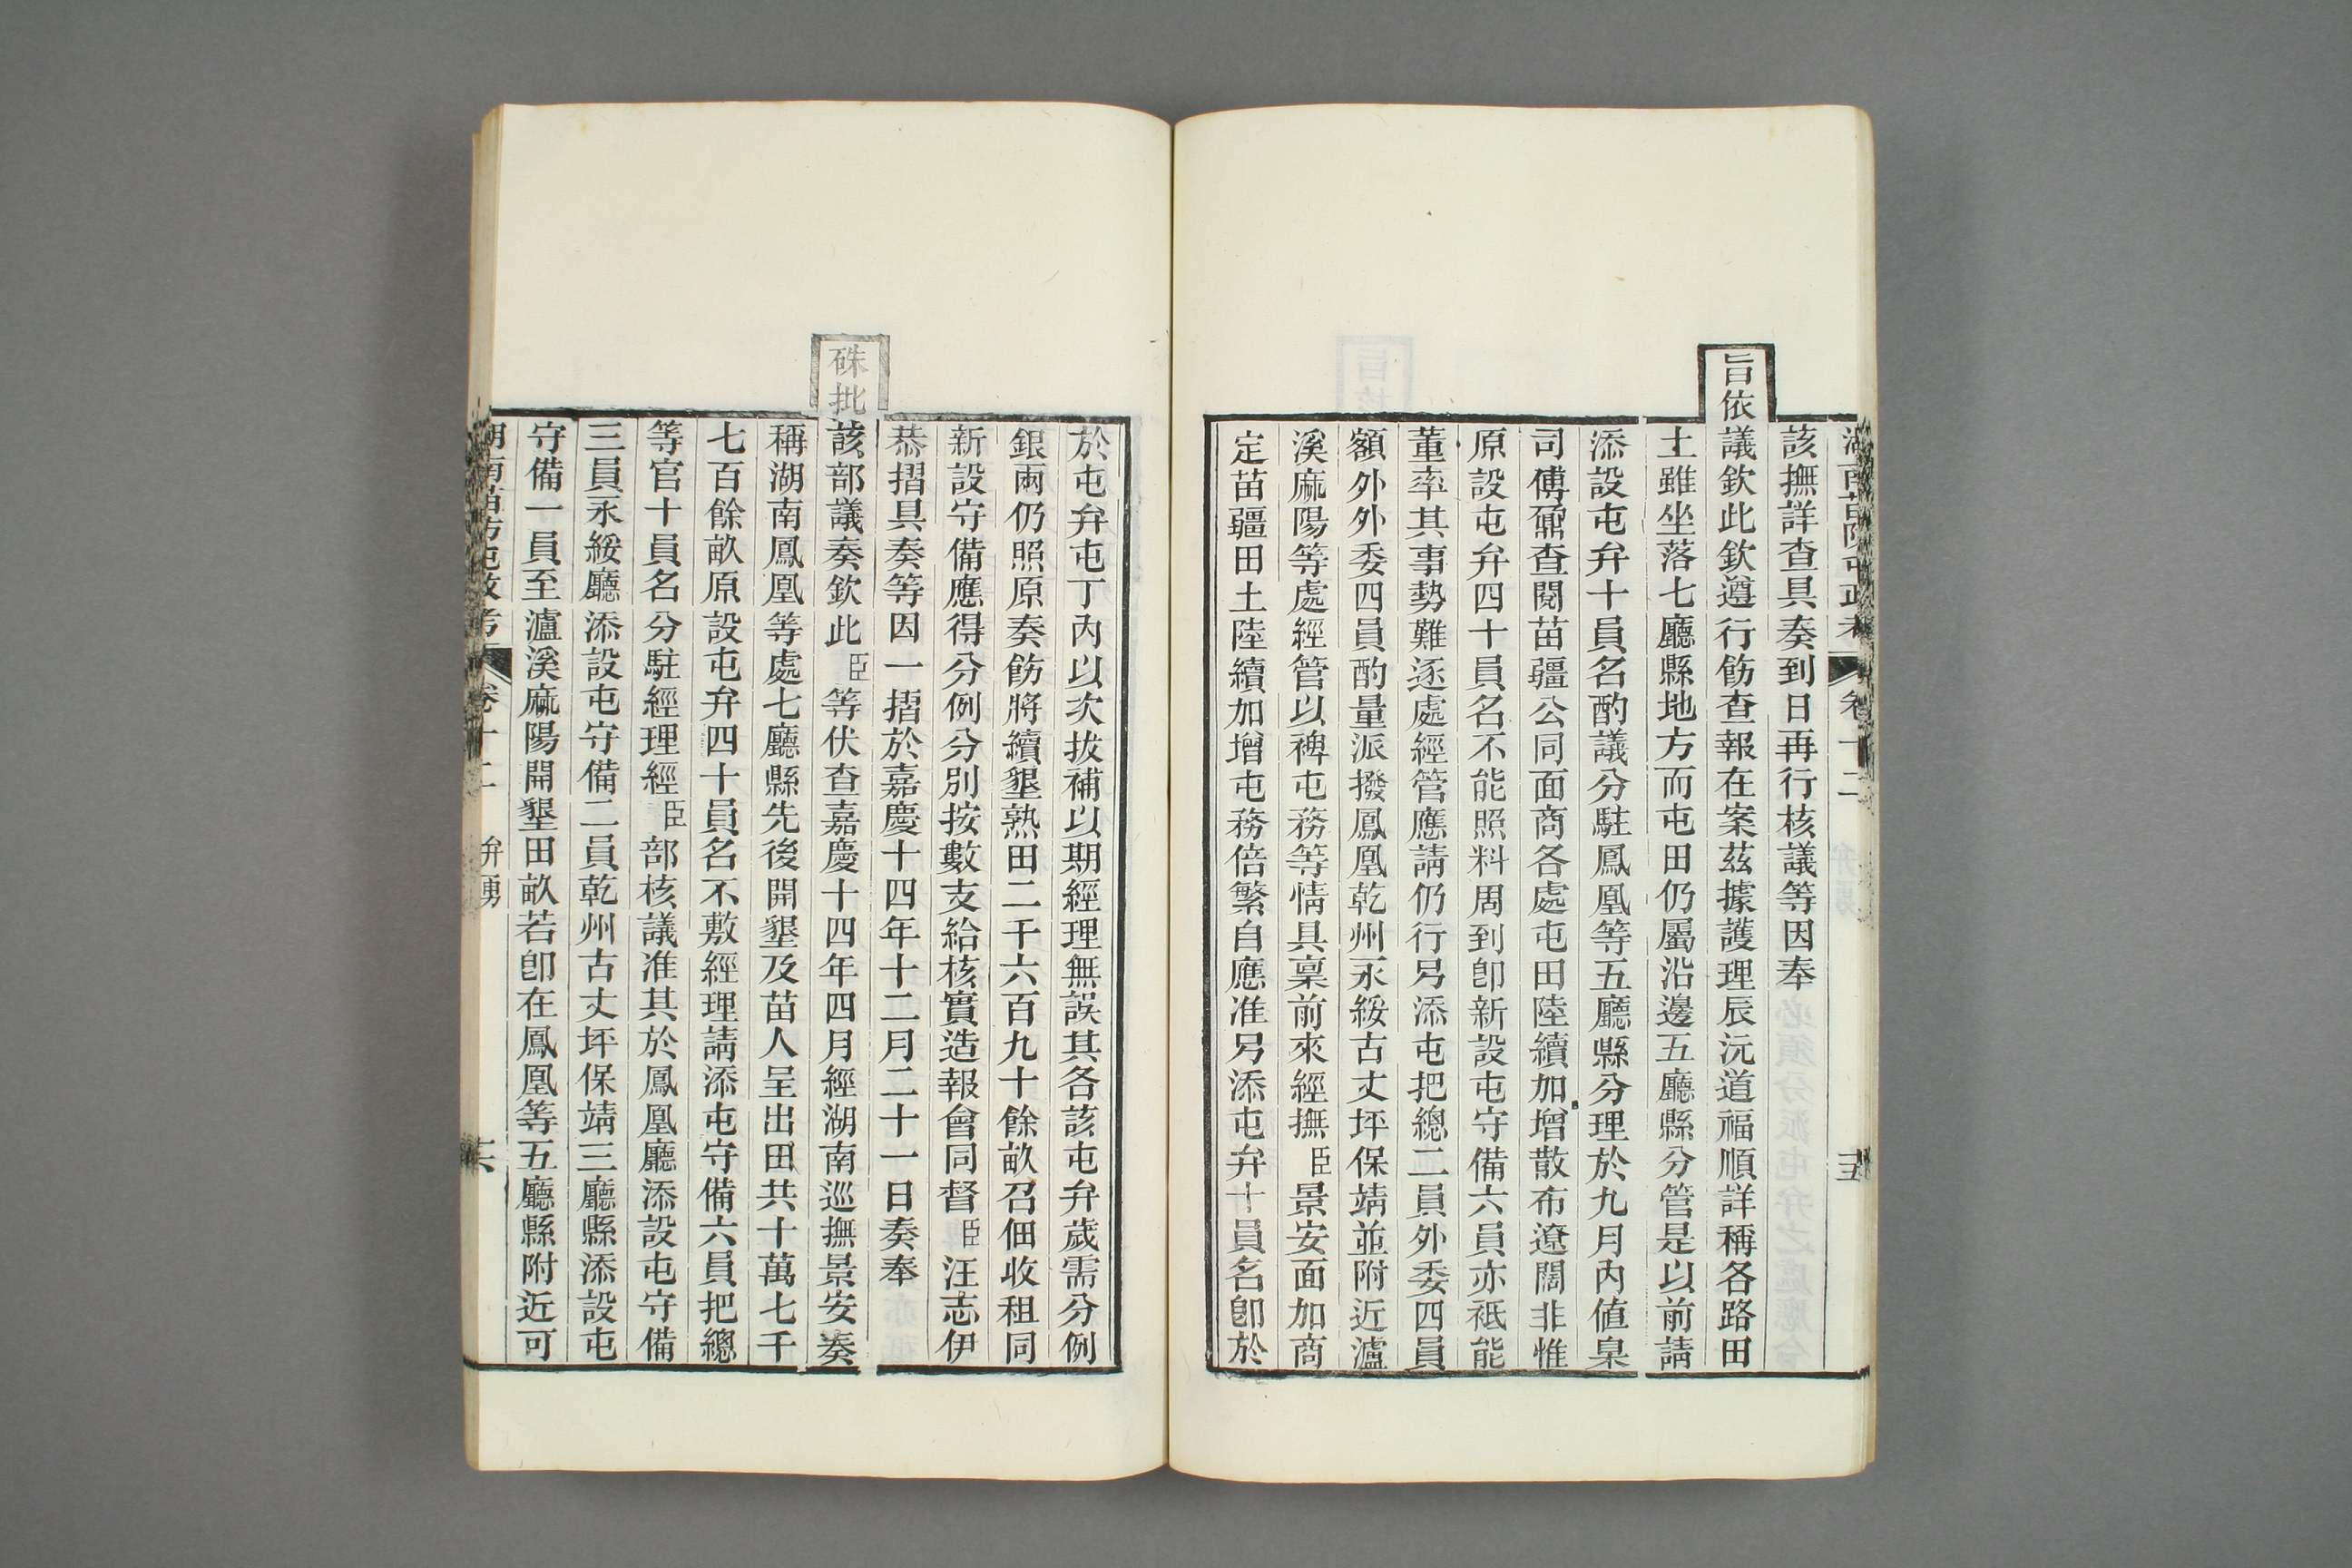 湖南苗防屯政考 卷十二 弁勇 十五
該撫詳查具奏到日再行核議等因奉
旨依議欽此欽遵行飭查報在案茲據護理辰沅道福順詳稱各路田
土雖坐落七廳縣地方而屯田仍屬沿邊五廳縣分管是以前請
添設屯弁十員名酌議分駐鳳凰等五廳縣分理於九月內值臬
司傅鼐查閱苗疆公同面商各處屯田陸續加增散布遼闊非惟
原設屯弁四十員名不能照料周到卽新設屯守備六員亦祗能
董率其事勢難逐處經管應請仍行另添屯把總二員外委四員
額外外委四員酌量派撥鳳凰乾州永綏古丈坪保靖並附近瀘
溪麻陽等處經管以裨屯務等情具稟前來經撫臣景安面加商
定苗疆田土陸續加增屯務倍繁自應准另添屯弁十員名卽於
於屯弁屯丁內以次拔補以期經理無誤其各該屯弁歲需分例
銀兩仍照原奏飭將續墾熟田二千六百九十餘畝召佃收租同
新設守備應得分例分別按數支給核實造報會同督臣汪志伊
恭摺具奏等因一摺於嘉慶十四年十二月二十一日奏奉
硃批該部議奏欽此臣等伏查嘉慶十四年四月經湖南巡撫景安奏
稱湖南鳳凰等處七廳縣先後開墾及苗人呈出田共十萬七千
七百餘畝原設屯弁四十員名不敷經理請添屯守備六員把總
等官十員名分駐經理經臣部核議准其於鳳凰廳添設屯守備
三員永綏廳添設屯守備二員乾州古丈坪保靖三廳縣添設屯
守備一員至瀘溪麻陽開墾田畝若卽在鳳凰等五廳縣附近可
湖南苗防屯政考 卷十二 弁勇 十六